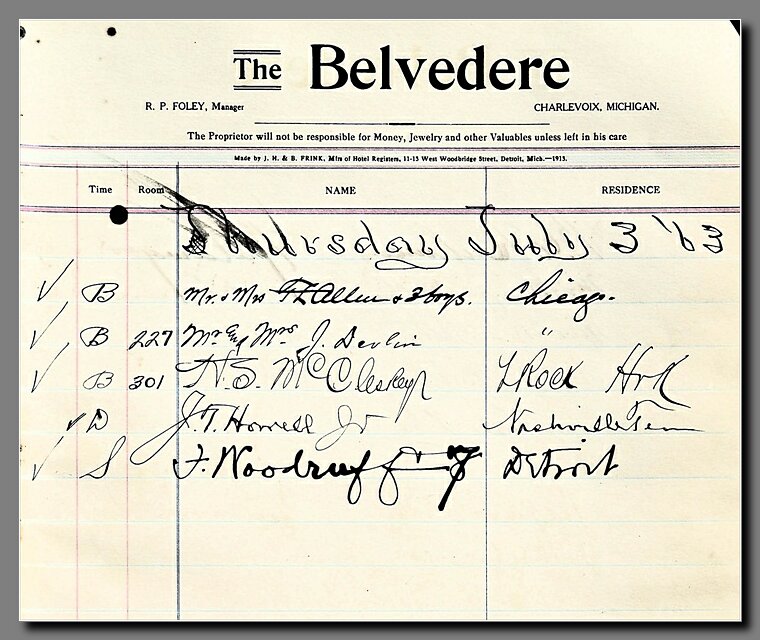 The Belvedere
R. P. FOLEY, Manager CHARLEVOIX, MICHIGAN.
The Proprietor will not be responsible for Money, Jewelry and other Valuables unless left in his care
Made by J. H. & B. FRINK, Mfrs of Hotel Registers, 11-15 West Woodbridge Street, Detroit, Mich.—1913.
Time Room NAME RESIDENCE
Thursday July 3 '13
✓ B Mr. & Mrs Allen & 3 boys. Chicago.
✓ B 227 Mr and Mrs. J. Devlin "
✓ B 301 N. S. McCleskey L Rock Ark
✓ D J. T. Howell Jr Nashville Tenn
✓ S F. Woodruff Detroit